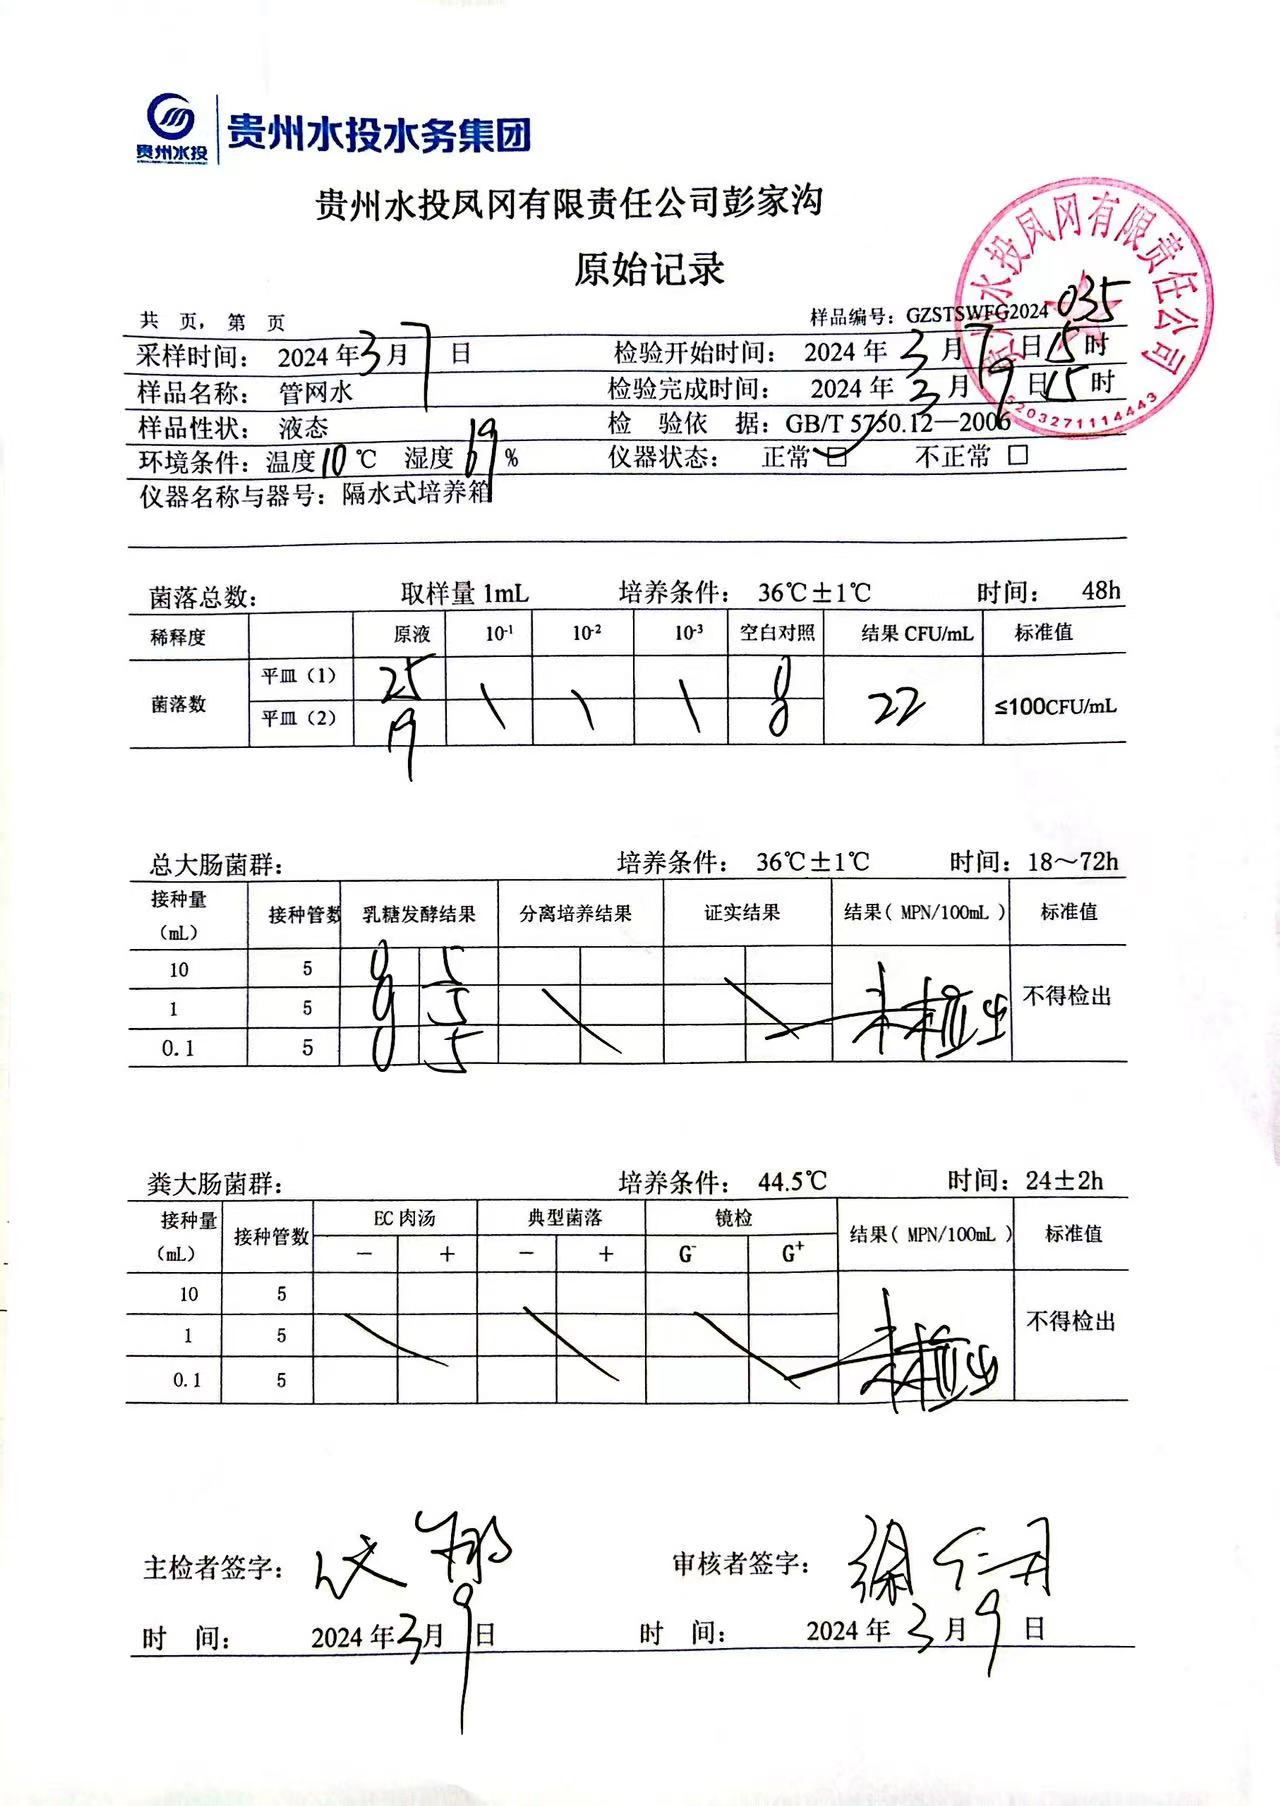 贵州水投 贵州水投水务集团
贵州水投凤冈有限责任公司彭家沟
原始记录
共 页，第 页 样品编号：GZSTSWFG2024 035
采样时间： 2024年3月7日 检验开始时间： 2024年3月7日15时
样品名称： 管网水 检验完成时间： 2024年3月9日15时
样品性状： 液态 检 验依 据：GB/T 5750.12—2006
环境条件：温度10℃ 湿度69% 仪器状态： 正常☑ 不正常□
仪器名称与器号：隔水式培养箱
贵州水投凤冈有限责任公司
5203271114443
菌落总数： 取样量1mL 培养条件： 36℃±1℃ 时间： 48h
稀释度 原液 10-1 10-2 10-3 空白对照 结果CFU/mL 标准值
菌落数 平皿（1） 25 \ \ \ 0 22 ≤100CFU/mL
平皿（2） 19 0
总大肠菌群： 培养条件： 36℃±1℃ 时间：18～72h
接种量（mL） 接种管数 乳糖发酵结果 分离培养结果 证实结果 结果（MPN/100mL） 标准值
10 5 0 5 未检出 不得检出
1 5 0 5
0.1 5 0 5
粪大肠菌群： 培养条件： 44.5℃ 时间：24±2h
接种量（mL） 接种管数 EC肉汤 典型菌落 镜检 结果（MPN/100mL） 标准值
－ ＋ － ＋ G- G+
10 5 未检出 不得检出
1 5
0.1 5
主检者签字： 审核者签字：
时 间： 2024年3月9日 时 间： 2024年3月9日